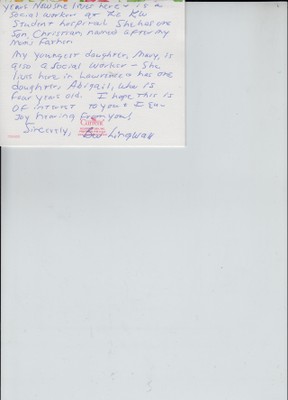 years Now she lives here - is a
social worker at the KU
Student hospital She has one
Son, Christian, named after my
mom's Father
My youngest daughter, Mary, is
also a social worker - She
lives here in Lawrence & has one
daughter, Abigail, who is
four years old. I hope this is
of interest to you & I en-
joy hearing from you!
Sincerely, Lingwall
Current